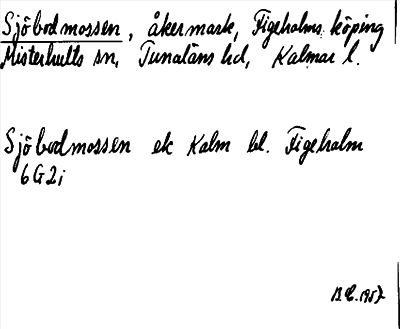 Sjöbodmossen, åkermark, Figeholms köping
Misterhults sn, Tunaläns hd, Kalmar l.
Sjöbodmossen ek Kalm bl. Figeholm
6G2i
1957